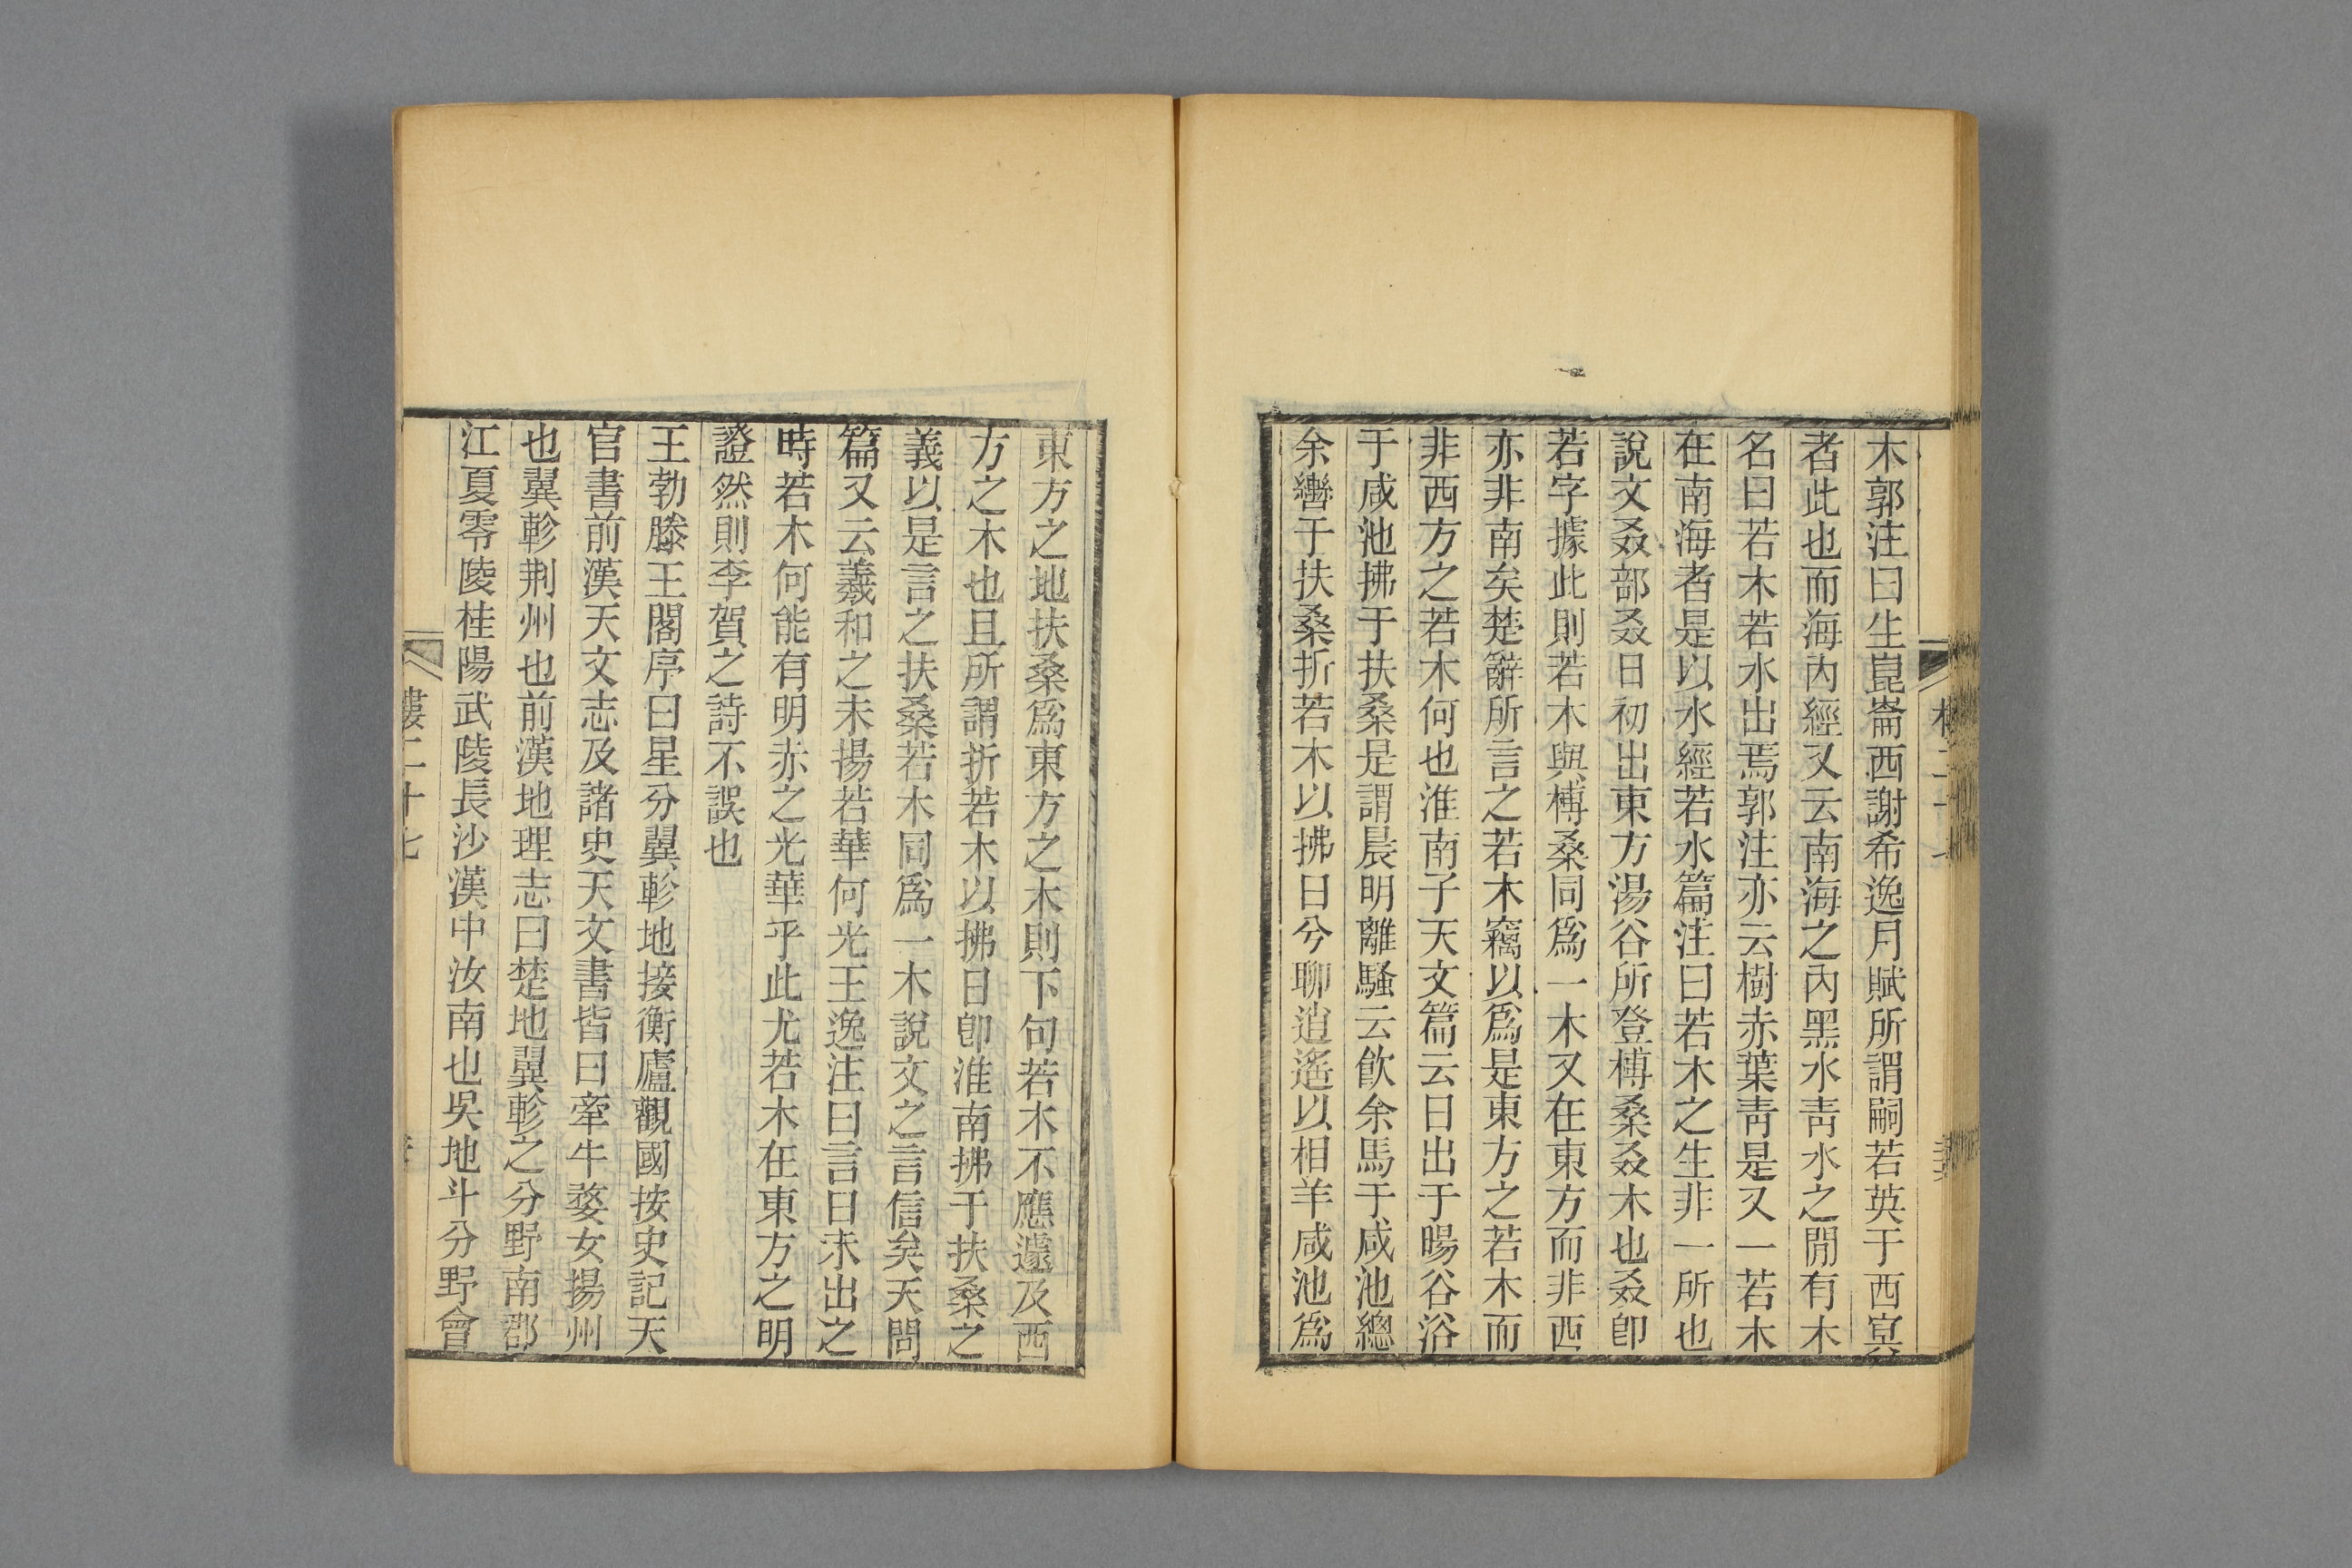 木郭注曰生崑崙西謝希逸月賦所謂嗣若英于西冥
者此也而海內經又云南海之內黑水靑水之閒有木
名曰若木若水出焉郭注亦云樹赤葉靑是又一若木
在南海者是以水經若水篇注曰若木之生非一所也
說文叒部叒日初出東方湯谷所登榑桑叒木也叒卽
若字據此則若木與榑桑同爲一木又在東方而非西
亦非南矣楚辭所言之若木竊以爲是東方之若木而
非西方之若木何也淮南子天文篇云日出于暘谷浴
于咸池拂于扶桑是謂晨明離騷云飮余馬于咸池總
余轡于扶桑折若木以拂日兮聊逍遙以相羊咸池爲
東方之地扶桑爲東方之木則下句若木不應遽及西
方之木也且所謂折若木以拂日卽淮南拂于扶桑之
義以是言之扶桑若木同爲一木說文之言信矣天問
篇又云羲和之未揚若華何光王逸注曰言日未出之
時若木何能有明赤之光華乎此尤若木在東方之明
證然則李賀之詩不誤也
王勃滕王閣序曰星分翼軫地接衡廬觀國按史記天
官書前漢天文志及諸史天文書皆曰牽牛婺女揚州
也翼軫荆州也前漢地理志曰楚地翼軫之分野南郡
江夏零陵桂陽武陵長沙漢中汝南也吳地斗分野會
樓二十七